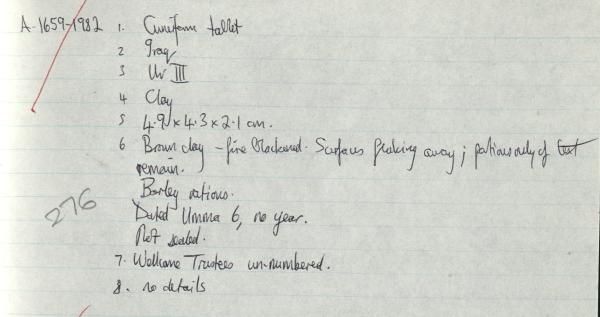 A.1659-1982 1. Cuneiform tablet
2 Iraq
3 Ur III
4 Clay
5 4.9 x 4.3 x 2.1 cm.
6 Brown clay - fire blackened. Surfaces flaking away; portions only of text
remain.
Barley rations.
Dated Umma 6, no year.
Not sealed.
276
7. Wellcome Trustees un-numbered.
8. no details